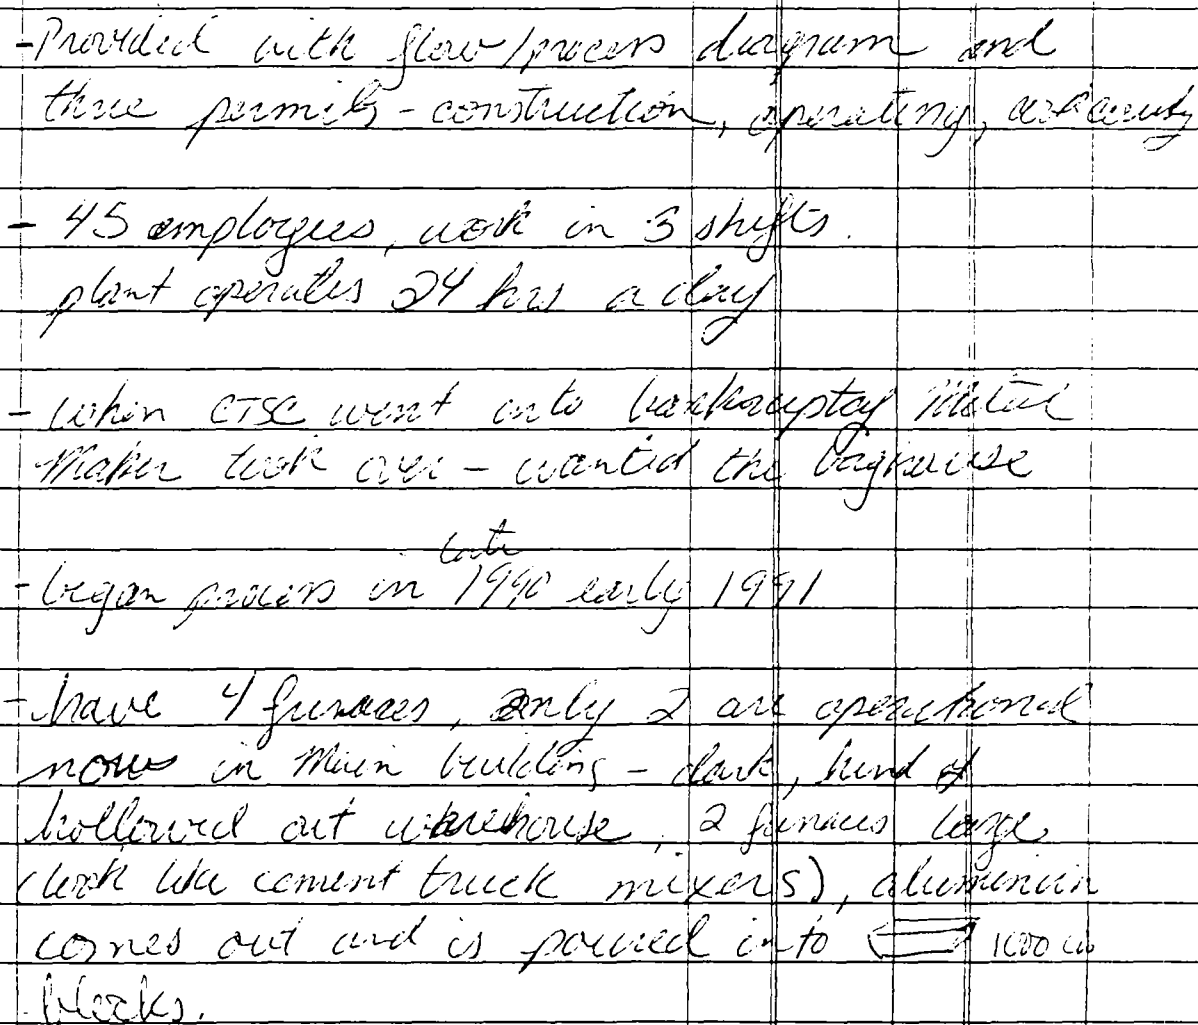 - Provided with flow/process diagram and
three permits - construction, operating,
- 45 employees, work in 3 shifts.
plant operates 24 hrs a day
- when CTSC went into bankruptcy Metal
Maker took over - wanted the baghouse
late
- began process in 1990 early 1991
- have 4 furnaces, only 2 are operational
now in Main building - dark, kind of
hollowed out warehouse, 2 furnaces large
(look like cement truck mixers), aluminum
comes out and is poured into 1000
blocks.